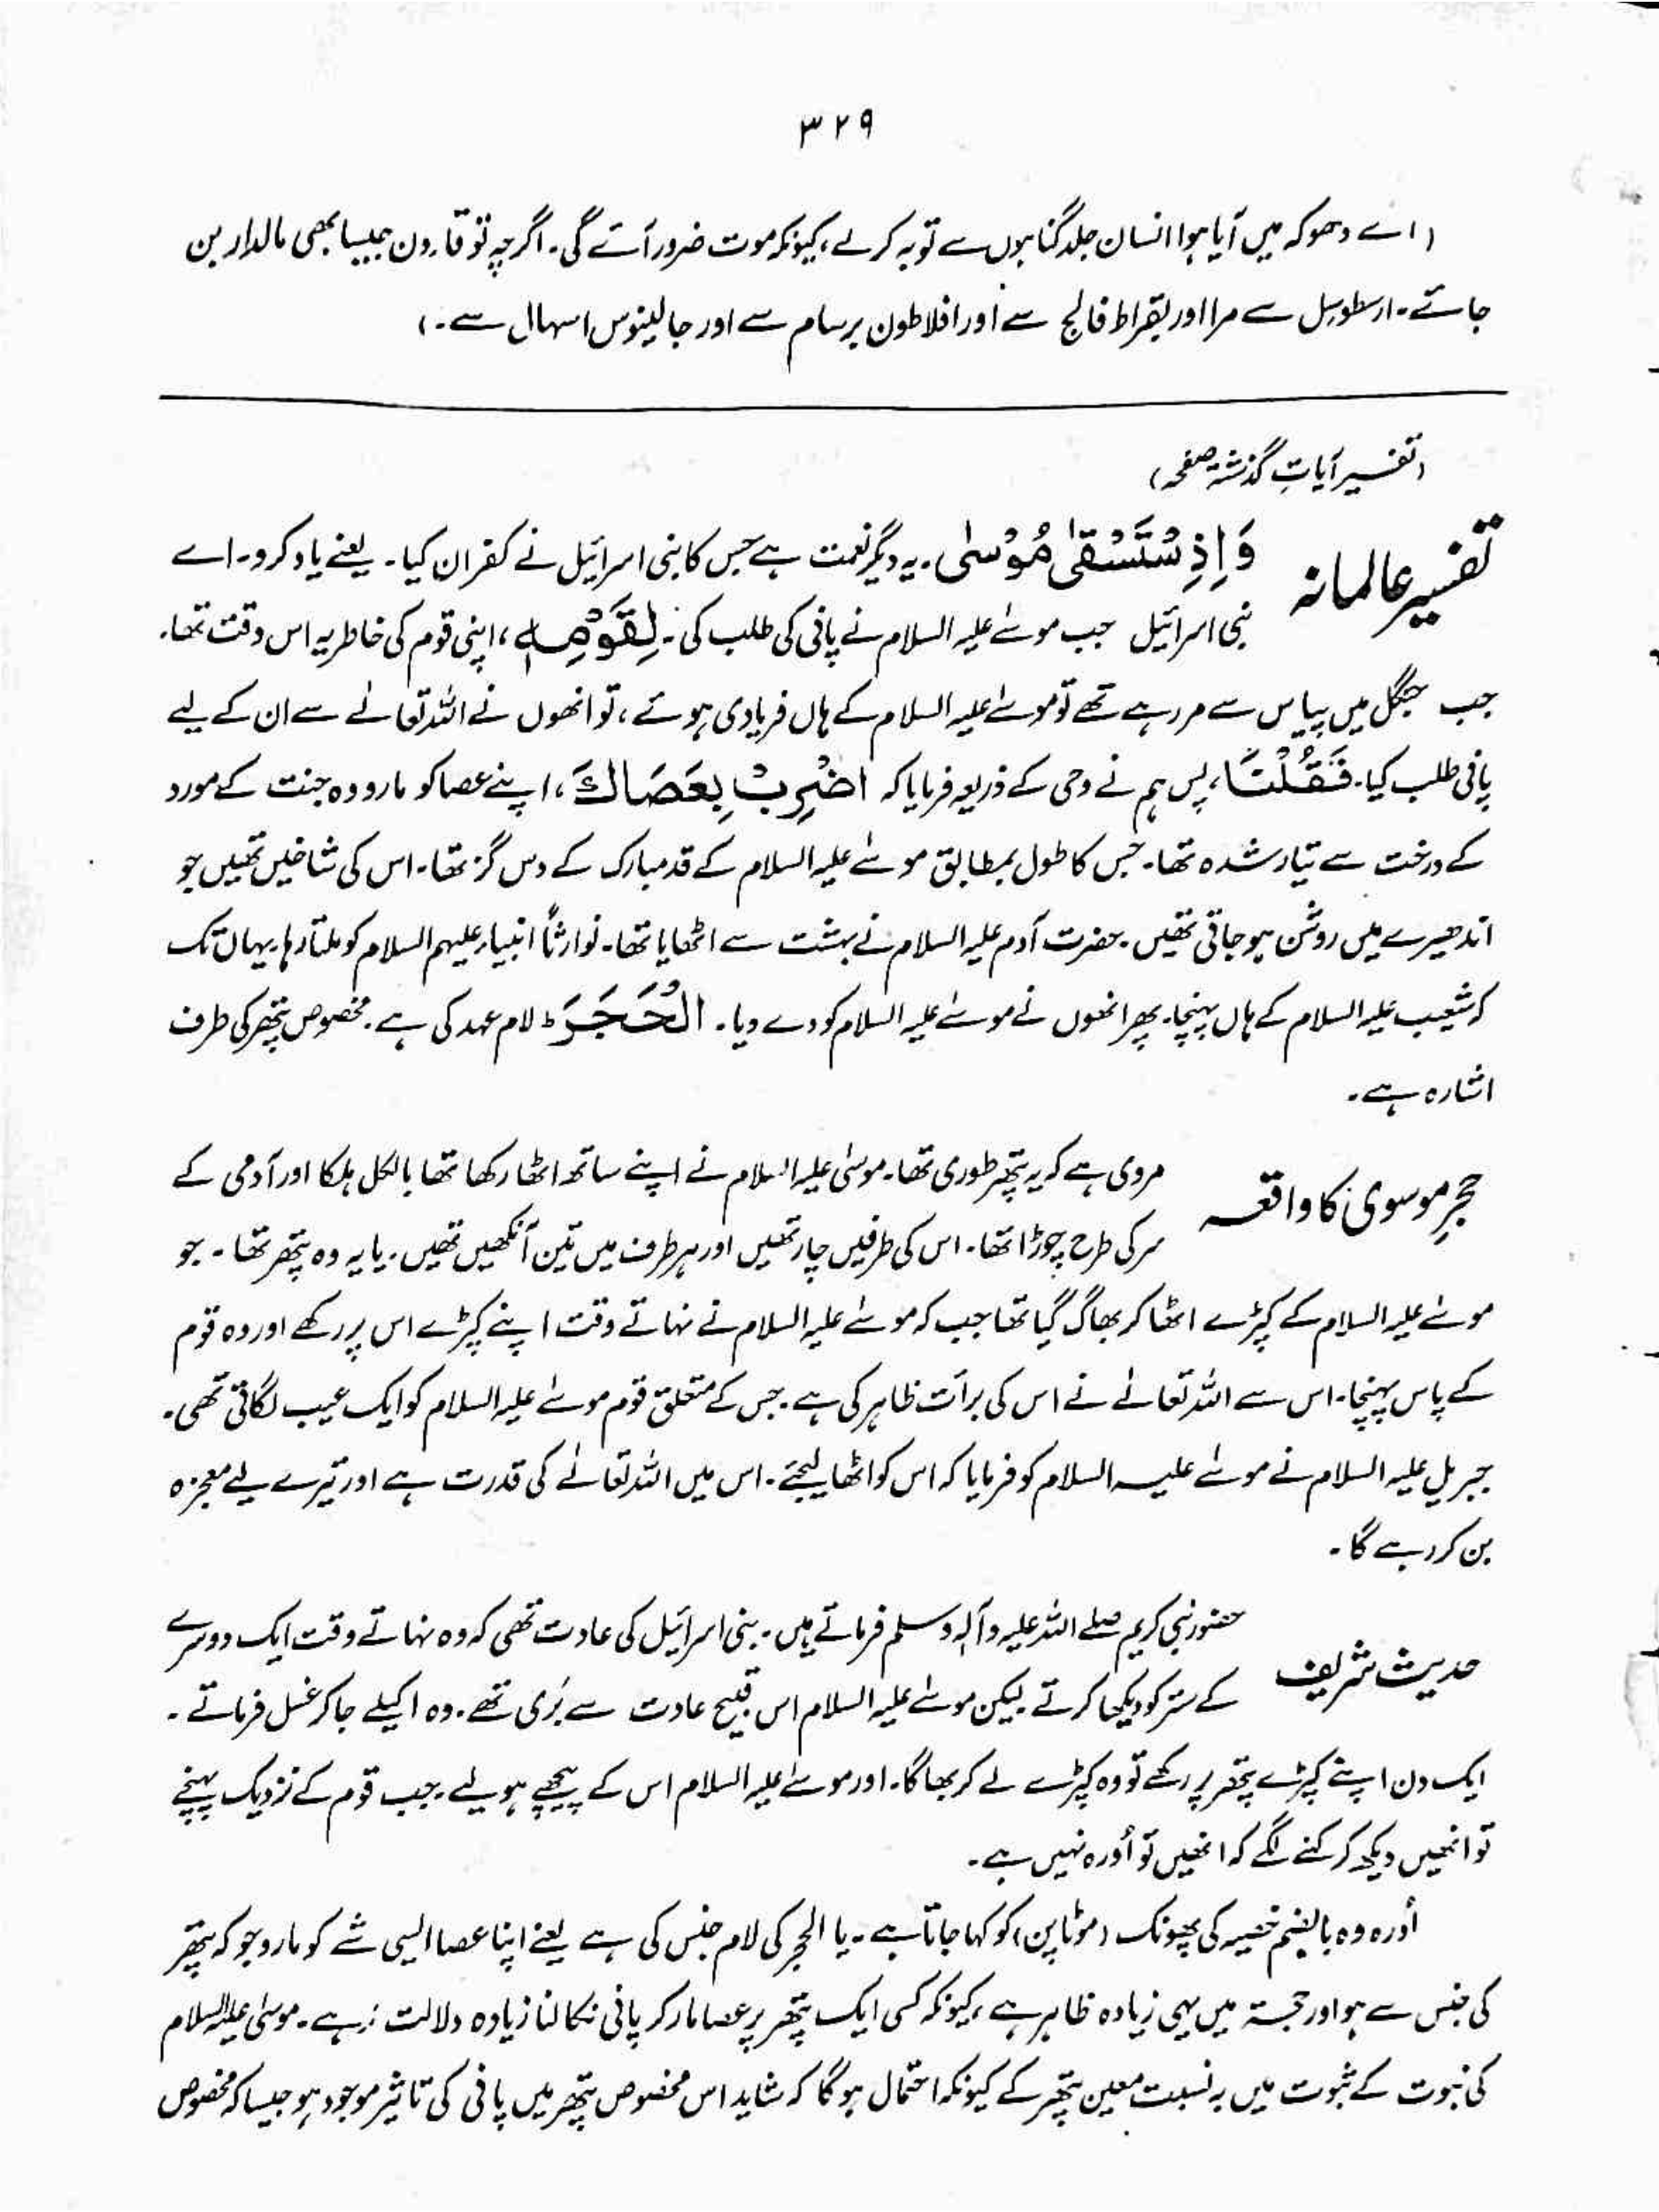 ۳۲۹
(اے دھوکہ میں آیا ہوا انسان جلد گناہوں سے توبہ کرلے، کیونکہ موت ضرور آئے گی۔ اگرچہ تو قارون جیسا بھی مالدار بن
جائے۔ ارسطو سِل سے مرا اور بقراط فالج سے اور افلاطون برسام سے اور جالینوس اسہال سے۔)
(تفسیر آیاتِ گذشتہ صفحہ)
تفسیر عالمانہ وَ اِذِ سْتَسْقٰی مُوْسٰی۔ یہ دیگر نعمت ہے جس کا بنی اسرائیل نے کفران کیا۔ یعنے یاد کرو۔ اے
بنی اسرائیل جب موسےٰ علیہ السلام نے پانی کی طلب کی۔ لِقَوْمِهٖ، اپنی قوم کی خاطر یہ اس وقت تھا۔
جب جنگل میں پیاس سے مر رہے تھے تو موسےٰ علیہ السلام کے ہاں فریادی ہوئے، تو انھوں نے اللہ تعالےٰ سے ان کے لیے
پانی طلب کیا۔ فَقُلْنَا، پس ہم نے وحی کے ذریعہ فرمایا کہ اضْرِبْ بِعَصَاكَ، اپنے عصا کو مارو وہ جنت کے مورد
کے درخت سے تیار شدہ تھا۔ جس کا طول بمطابق موسےٰ علیہ السلام کے قد مبارک کے دس گز تھا۔ اس کی شاخیں تھیں جو
اندھیرے میں روشن ہو جاتی تھیں۔ حضرت آدم علیہ السلام نے بہشت سے اٹھایا تھا۔ توارثاً انبیاء علیہم السلام کو ملتا رہا۔ یہاں تک
کہ شعیب علیہ السلام کے ہاں پہنچا۔ پھر انھوں نے موسےٰ علیہ السلام کو دے دیا۔ الْحَجَرَ ط لام عہد کی ہے۔ مخصوص پتھر کی طرف
اشارہ ہے۔
حجرِ موسوی کا واقعہ مروی ہے کہ یہ پتھر طوری تھا۔ موسیٰ علیہ السلام نے اپنے ساتھ اٹھا رکھا تھا بالکل ہلکا اور آدمی کے
سر کی طرح چوڑا تھا۔ اس کی طرفیں چار تھیں اور ہر طرف میں تین آنکھیں تھیں۔ یا یہ وہ پتھر تھا۔ جو
موسےٰ علیہ السلام کے کپڑے اٹھا کر بھاگ گیا تھا جب کہ موسےٰ علیہ السلام نے نہاتے وقت اپنے کپڑے اس پر رکھے اور وہ قوم
کے پاس پہنچا۔ اس سے اللہ تعالےٰ نے اس کی برأت ظاہر کی ہے۔ جس کے متعلق قوم موسےٰ علیہ السلام کو ایک عیب لگاتی تھی۔
جبریل علیہ السلام نے موسےٰ علیہ السلام کو فرمایا کہ اس کو اٹھا لیجئے۔ اس میں اللہ تعالےٰ کی قدرت ہے اور تیرے لیے معجزہ
بن کر رہے گا۔
حدیث شریف حضور نبی کریم صلے اللہ علیہ وآلہ وسلم فرماتے ہیں۔ بنی اسرائیل کی عادت تھی کہ وہ نہاتے وقت ایک دوسرے
کے ستر کو دیکھا کرتے لیکن موسےٰ علیہ السلام اس قبیح عادت سے بَری تھے۔ وہ اکیلے جا کر غسل فرماتے۔
ایک دن اپنے کپڑے پتھر پر رکھے تو وہ کپڑے لے کر بھاگا۔ اور موسےٰ علیہ السلام اس کے پیچھے ہو لیے۔ جب قوم کے نزدیک پہنچے
تو انھیں دیکھ کر کہنے لگے کہ انھیں تو اُورہ نہیں ہے۔
اُورہ وہ بالضم خصیہ کی پھونک (موٹاپن) کو کہا جاتا ہے۔ یا الحجر کی لام جنس کی ہے یعنے اپنا عصا ایسی شے کو مارو جو کہ پتھر
کی جنس سے ہو اور حجتہ میں یہی زیادہ ظاہر ہے، کیونکہ کسی ایک پتھر پر عصا مار کر پانی نکالنا زیادہ دلالت ہے۔ موسیٰ علیہ السلام
کی نبوت کے ثبوت میں بہ نسبت معین پتھر کے کیونکہ احتمال ہو گا کہ شاید اس مخصوص پتھر میں پانی کی تاثیر موجود ہو جیسا کہ مخصوص